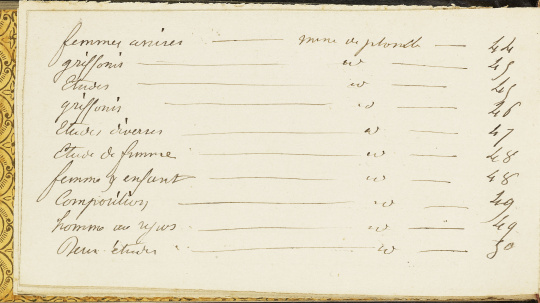 femmes assises — mine de plomb — 44
griffonis — id — 45
Etudes — id — 45
griffonis — id — 46
Etudes diverses — id — 47
Etude de femme — id — 48
femme & enfant — id — 48
Composition — id — 49
homme au repos — id — 49
Deux études — id — 50